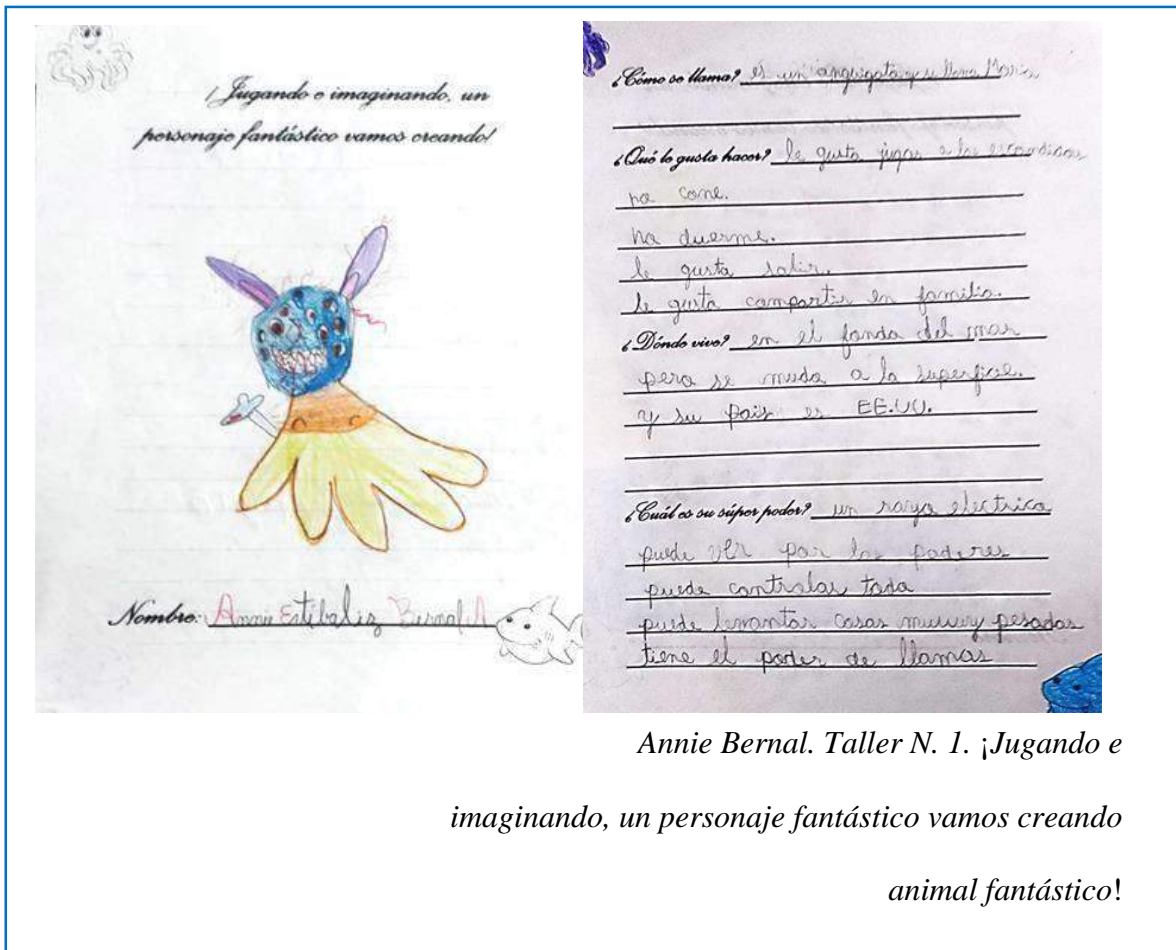 ¡Jugando e imaginando, un
personaje fantástico vamos creando!
Nombre: Annie Estibaliz Bernal A
¿Cómo se llama? es un anguigato y se llama María
¿Qué le gusta hacer? le gusta jugar a las escondidas
no come.
no duerme.
le gusta salir.
le gusta compartir en familia.
¿Dónde vive? en el fondo del mar
pero se muda a la superficie.
y su pais es EE.UU.
¿Cuál es su súper poder? un rayo electrico
puede ver por las paderes
puede controlar todo
puede levantar cosas muuuy pesadas
tiene el poder de llamas
Annie Bernal. Taller N. 1. ¡Jugando e
imaginando, un personaje fantástico vamos creando
animal fantástico!